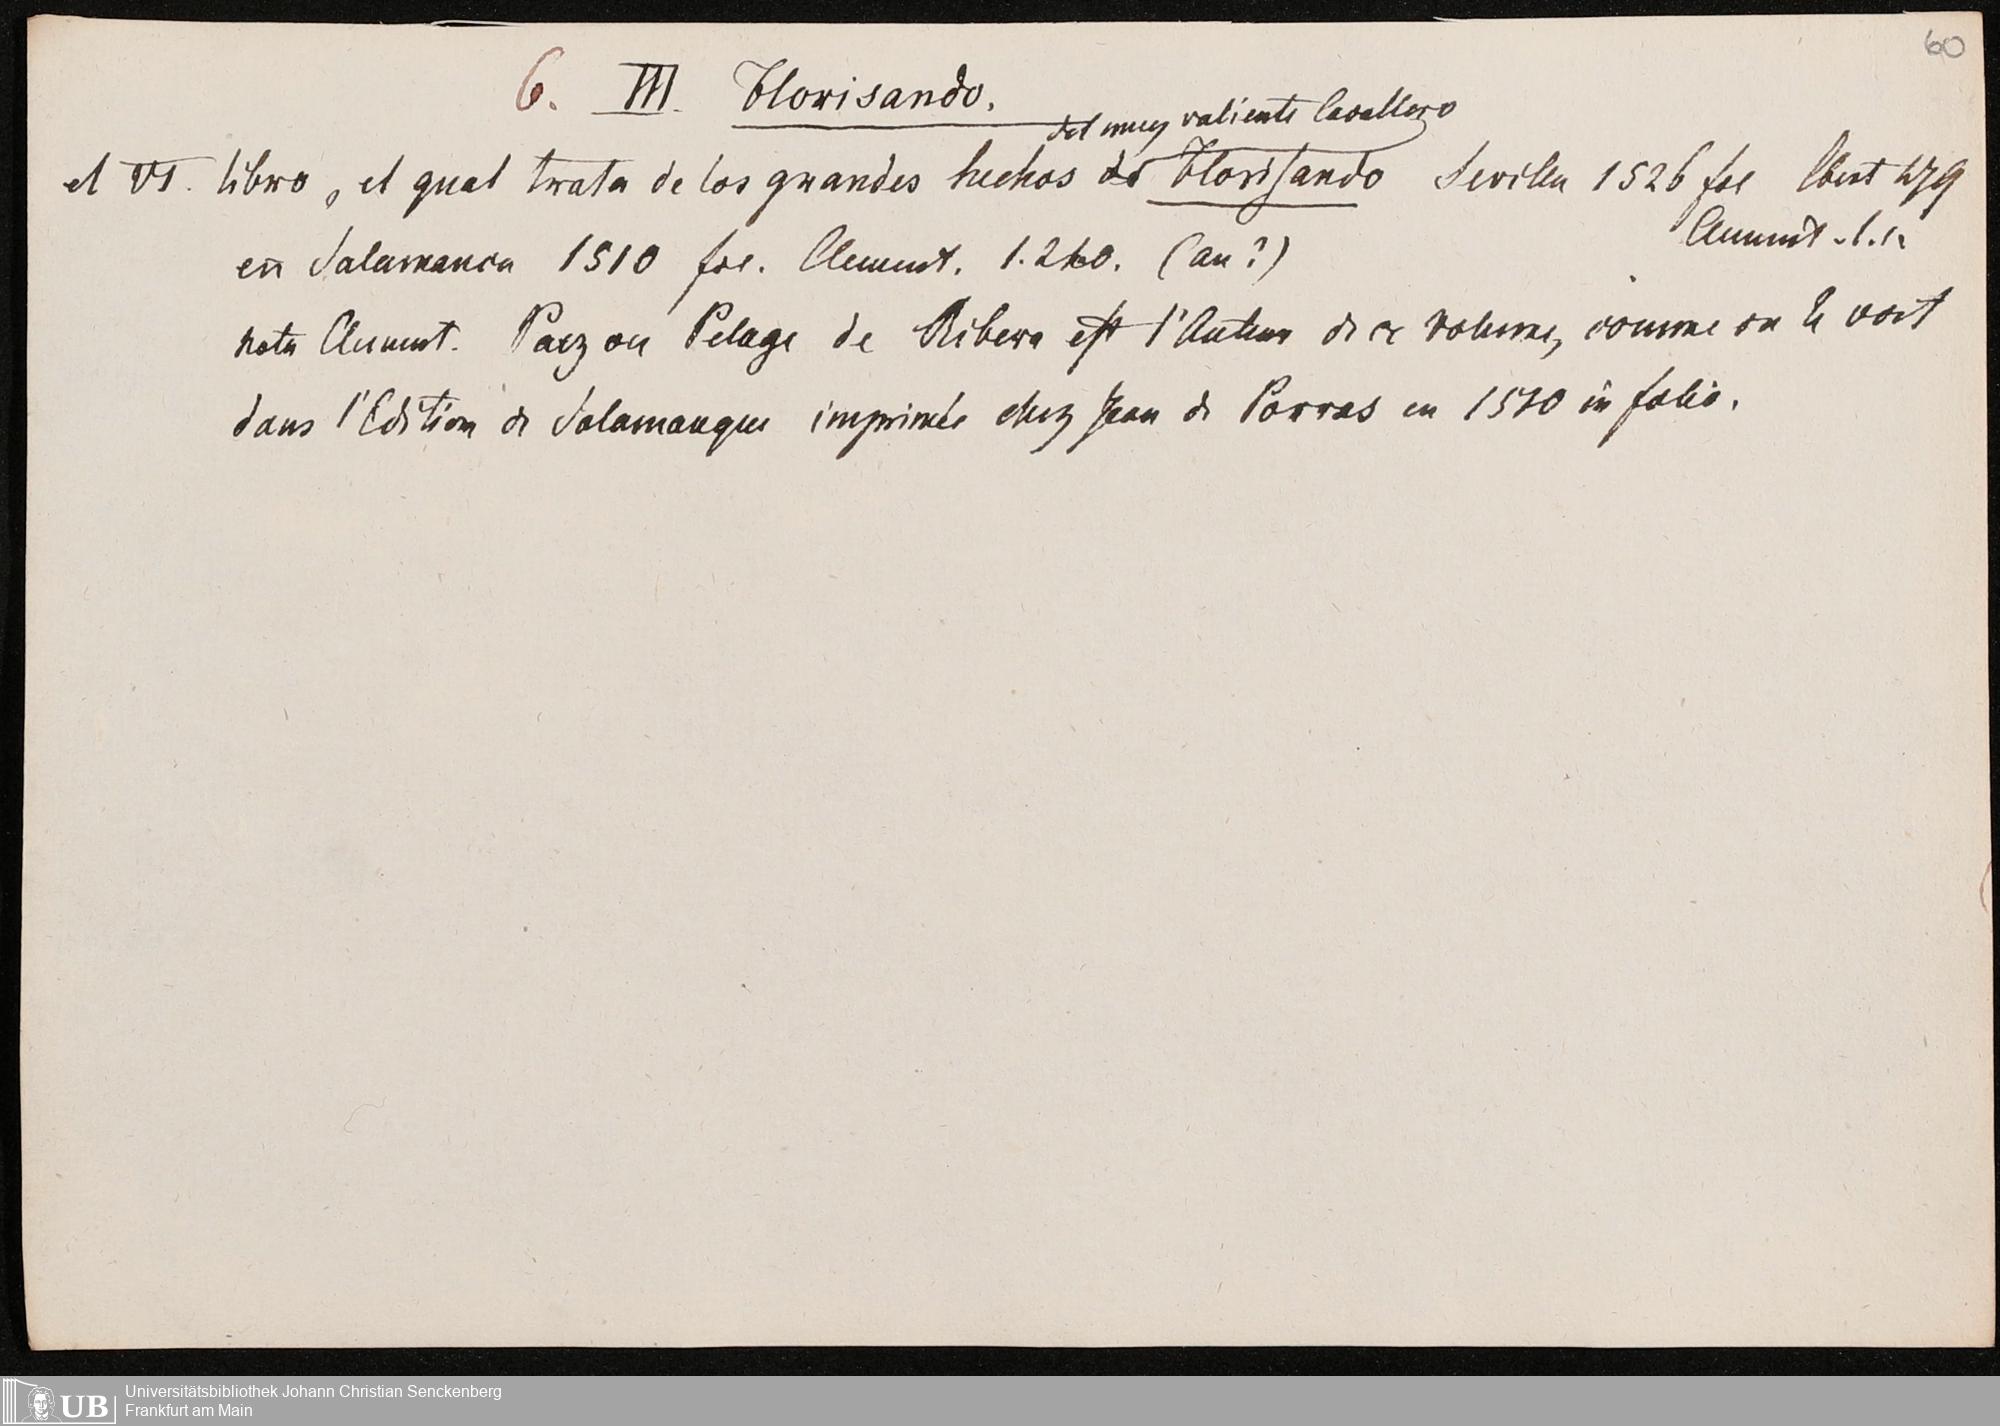 60
6. III. Florisando.
del muy valiente Cavallero
el VI. libro, el qual trata de los grandes hechos de Florisando Sevilla 1526 fol Ebert 479
Clement. l.c.
en Salamanca 1510 fol. Clement. 1.240. (an?)
nota Clement. Paez ou Pelage de Ribera est l'Auteur de ce volume, comme on le voit
dans l'Edition de Salamanque imprimée chez Jean de Porras en 1510 in folio.
UB
Universitätsbibliothek Johann Christian Senckenberg
Frankfurt am Main